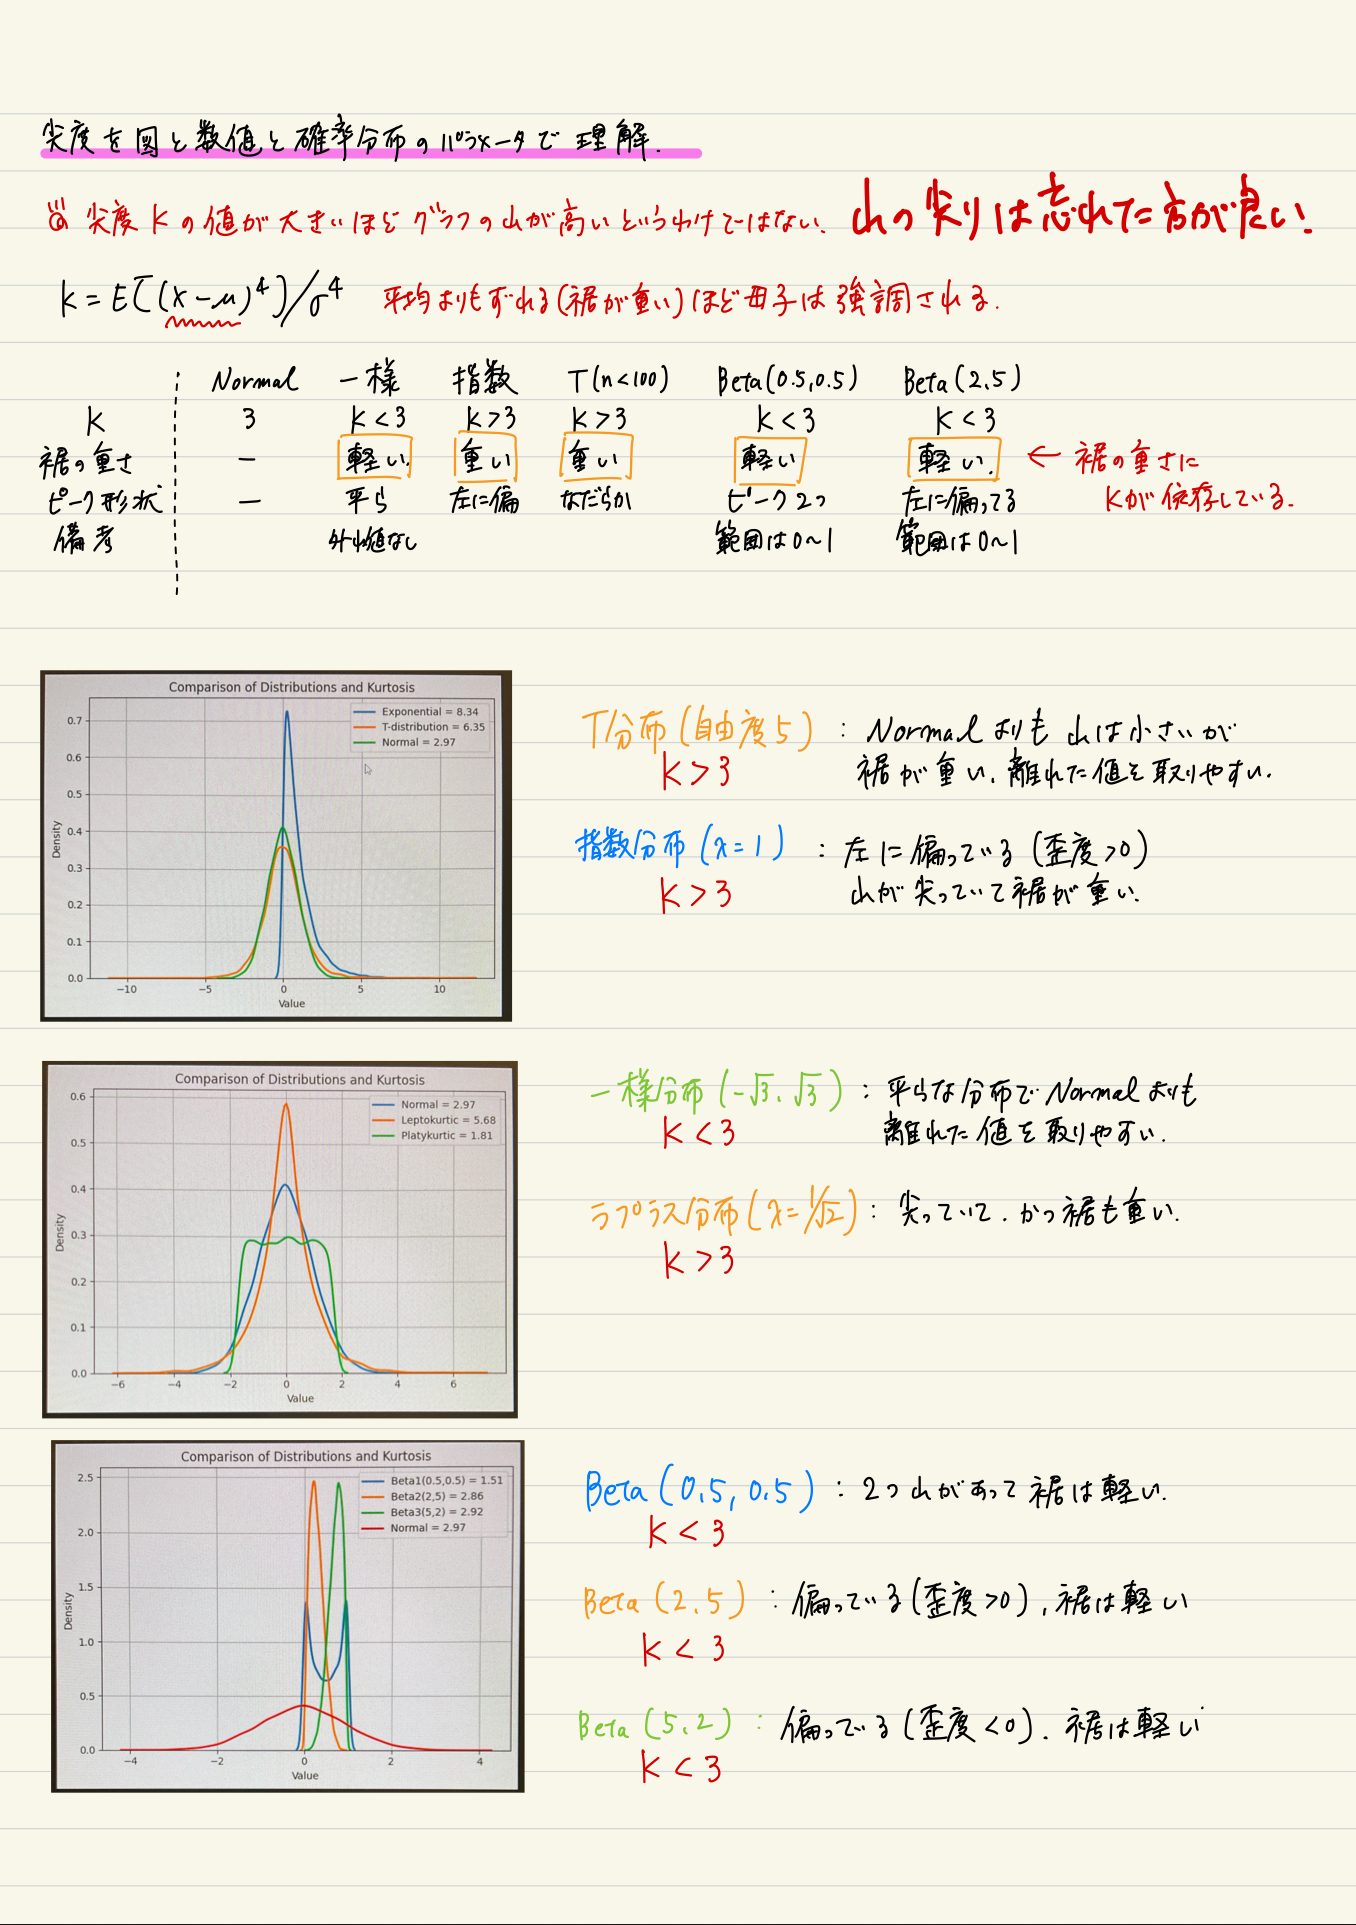 尖度を図と数値と確率分布のパラメータで理解.
尖度 K の値が大きいほどグラフの山が高いというわけではない. 山の尖りは忘れた方が良い!
K = E[(X-μ)^4]/σ^4 平均よりもずれる(裾が重い)ほど母子は強調される.
Normal 一様 指数 T(n<100) Beta(0.5,0.5) Beta(2.5)
K 3 K<3 K>3 K>3 K<3 K<3
裾の重さ — 軽い. 重い 重い 軽い 軽い. ← 裾の重さに
ピーク形状 — 平ら 左に偏 なだらか ピーク2つ 左に偏ってる Kが依存している.
備考 外れ値なし 範囲は0~1 範囲は0~1
Comparison of Distributions and Kurtosis
Exponential = 8.34
T-distribution = 6.35
Normal = 2.97
0.7
0.6
0.5
0.4
0.3
0.2
0.1
0.0
Density
-10 -5 0 5 10
Value
T分布(自由度5) : Normalよりも山は小さいが
K>3 裾が重い、離れた値を取りやすい.
指数分布(λ=1) : 左に偏っている(歪度>0)
K>3 山が尖っていて裾が重い.
Comparison of Distributions and Kurtosis
Normal = 2.97
Leptokurtic = 5.68
Platykurtic = 1.81
0.6
0.5
0.4
0.3
0.2
0.1
0.0
Density
-6 -4 -2 0 2 4 6
Value
一様分布(-√3、√3) : 平らな分布でNormalよりも
K<3 離れた値を取りやすい.
ラプラス分布(λ=1/√2) : 尖っていて、かつ裾も重い.
K>3
Comparison of Distributions and Kurtosis
Beta1(0.5,0.5) = 1.51
Beta2(2,5) = 2.86
Beta3(5,2) = 2.92
Normal = 2.97
2.5
2.0
1.5
1.0
0.5
0.0
Density
-4 -2 0 2 4
Value
Beta(0.5,0.5) : 2つ山があって裾は軽い.
K<3
Beta(2.5) : 偏っている(歪度>0)、裾は軽い
K<3
Beta(5.2) : 偏っている(歪度<0)、裾は軽い
K<3